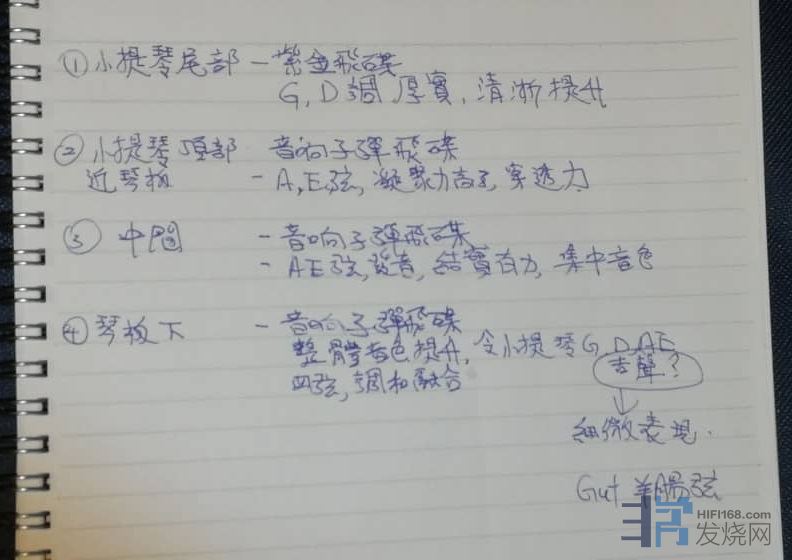 ①小提琴尾部 - 紫金飛碟
G, D 調厚實, 清淅提升
②小提琴頂部 音响子彈飛碟
近琴板 - A, E弦, 凝聚力高了, 穿透力
③ 中間 - 音响子彈飛碟
- A E弦, 發音, 結實有力, 集中音色
④琴板下 - 音响子彈飛碟
整體音色提升, 令小提琴 G, D, A E
四弦, 調和融合 ?
細微表現.
Gut 羊腸弦
HIFI168.com
发烧网